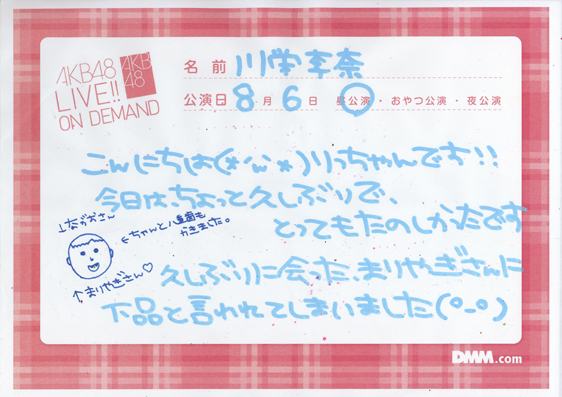 AKB48
LIVE!!
ON DEMAND
AKB
48
名前 川栄李奈
公演日 8月6日 昼公演・おやつ公演・夜公演
こんにちは(*'ω'*)りっちゃんです!!
今日は、ちょっと久しぶりで、
とってもたのしかったです
↓ながおさん
←ちゃんと八重歯も
かきました。
↑まりやぎさん♡
久しぶりに会った、まりやぎさんに
下品と言われてしまいました(°-°)
DMM.com